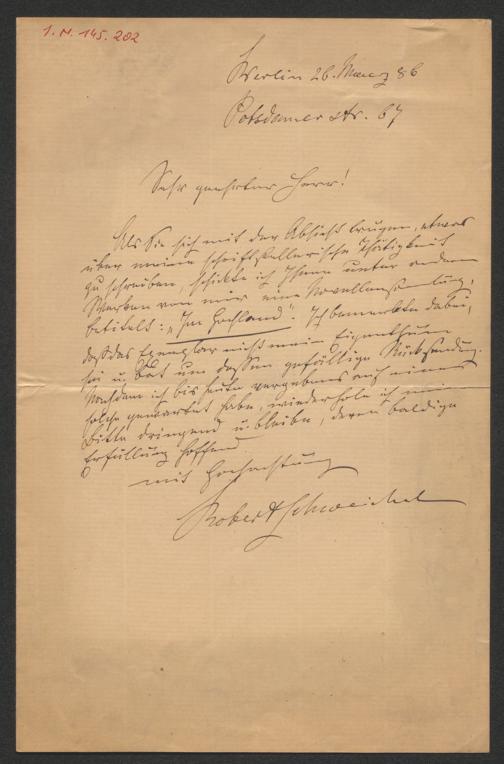 I. N. 145.202
Berlin 26. Maerz 86
Potsdamer Str. 67
Sehr geehrter Herr!
Als Sie sich mit der Absicht trugen, etwas
über meine schriftstellerische Thätigkeit
zu schreiben, schickte ich Ihnen unter andern
Werken von mir eine Novellensammlung,
betitelt: „Im Hochland“. Ich bemerkte dabei,
daß das Exemplar nicht mein Eigenthum
sei u. bat um dessen gefällige Rücksendung.
Nachdem ich bis heute vergebens auf eine
solche gewartet habe, wiederhole ich meine
Bitte dringend u. bleibe, deren baldige
Erfüllung hoffend
mit Hochachtung
Robert Schweichel